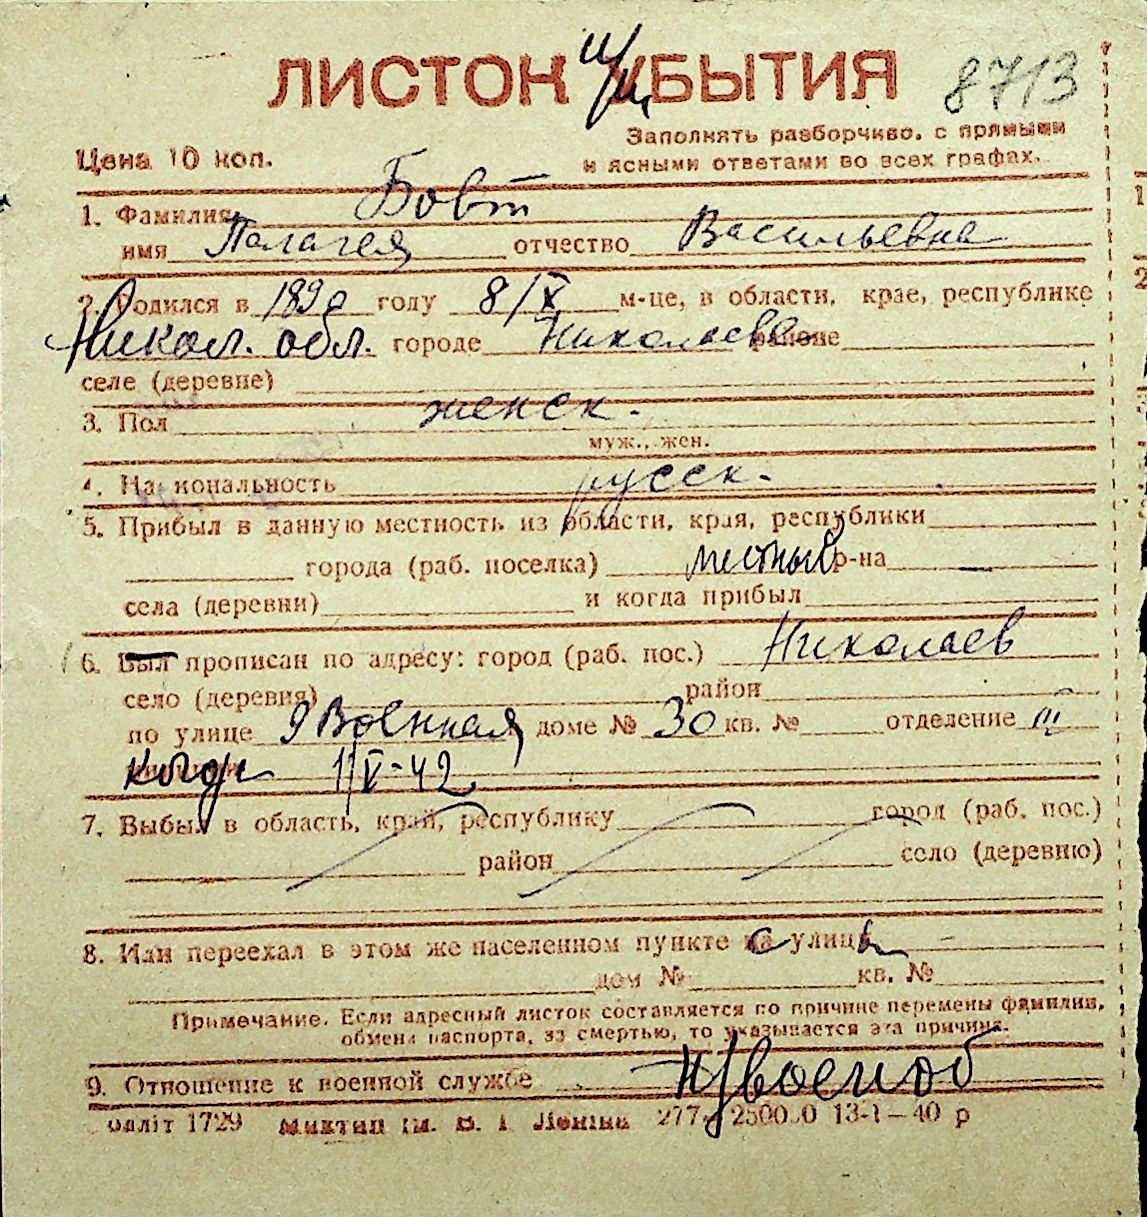 ЛИСТОК УБЫТИЯ
8713
Цена 10 коп.
Заполнять разборчиво, с прямыми
и ясными ответами во всех графах.
1. Фамилия Бовт
имя Палагея отчество Васильевна
2. Родился в 1890 году 8/X м-це, в области, крае, республике
Никол. обл. городе Николаеве районе
селе (деревне)
3. Пол женск.
муж., жен.
4. Национальность русск.
5. Прибыл в данную местность из области, края, республики
города (раб. поселка) местный р-на
села (деревни) и когда прибыл
6. Был прописан по адресу: город (раб. пос.) Николаев
село (деревня) район
по улице 9 Военная доме № 30 кв. № отделение III
когда 11/V-42
7. Выбыл в область, край, республику город (раб. пос.)
район село (деревню)
8. Или переехал в этом же населенном пункте с улицы
дом № кв. №
Примечание. Если адресный листок составляется по причине перемены фамилии,
обмена паспорта, за смертью, то указывается эта причина.
9. Отношение к военной службе н/военоб
1729 ім. В. І. Леніна 277 250000 13-I-40 р